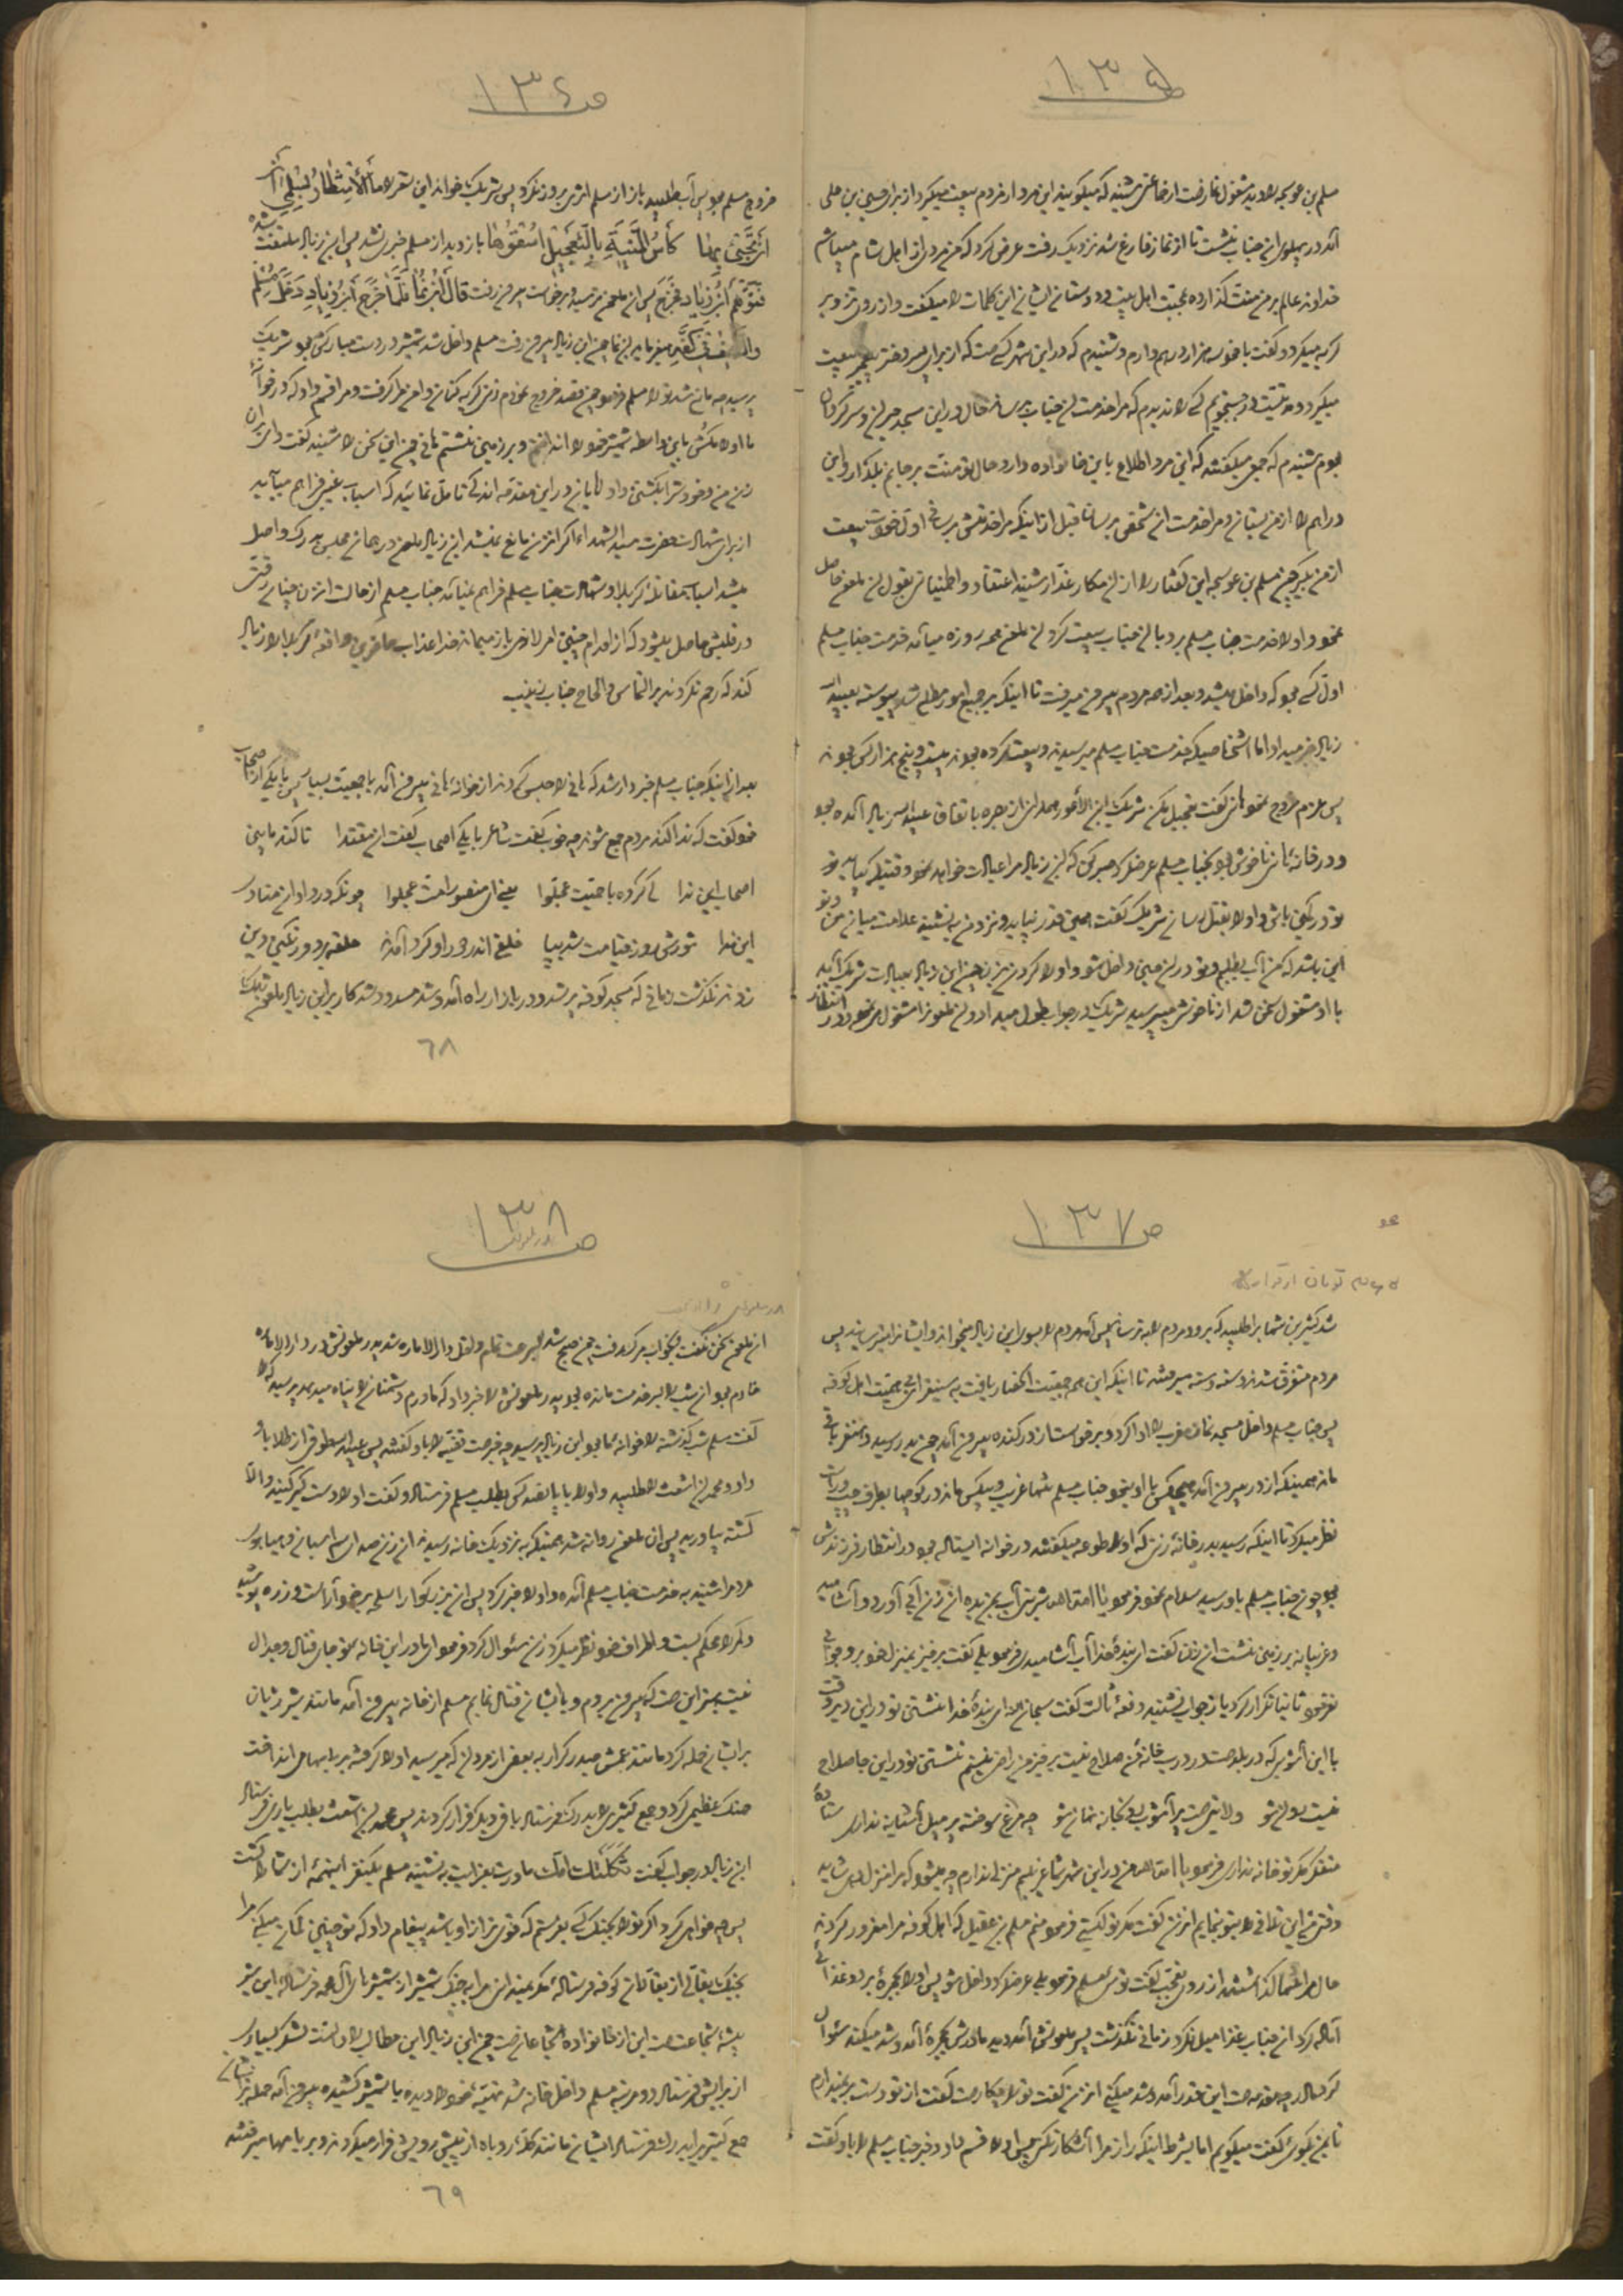 ص ١٣٥
مسلم بن عوسجه را دید مشغول نماز است از جماعتی شنید که میگویند این مرد از مردم بیعت میگیرد از برای حسین بن علی
آمد در پهلوی آن جناب نشست تا از نماز فارغ شد نزدیک رفت عرض کرد که من مردی از اهل شام میباشم
خداوند عالم بر من منت گذارده بمحبت اهل بیت و دوستان ایشان این کلمات را میگفت و از روی تزویر
گریه میکرد و گفت با خود سه هزار درهم دارم و شنیدم که در این شهر کسی هست که از برای پسر دختر پیغمبر بیعت
میگیرد در جستجویم کسی را ندیدم که مرا خدمت آن جناب برساند حال در این مسجد حیران و سرگردان
بودم شنیدم که جمعی میگفتند که این مرد اطلاع باین خانواده دارد حال تو منت بر جانم بگذار و این
دراهم را از من بستان و مرا خدمت آن شخص برسان قبل از اینکه مرا خدمتش برسانی اول خودت بیعت
از من بگیر چون مسلم بن عوسجه این گفتار را از آن مکار غدار شنید اعتقاد و اطمینان بقول آن ملعون حاصل
نمود و او را خدمت جناب مسلم برد با آن جناب بیعت کرد آن ملعون همه روزه میآمد خدمت جناب مسلم
اول کسی بود که داخل میشد و بعد از همه مردم بیرون میرفت تا اینکه بر جمیع امور مطلع شد پیوسته بعبید الله
زیاد خبر میداد اما اشخاصیکه خدمت جناب مسلم میرسیدند و بیعت کرده بودند بیست و پنج هزار کس بودند
پس عزم خروج نمود هانی گفت تعجیل مکن شریک بن الأعور همدانی از بصره باتفاق عبید الله زیاد آمده بود
و در خانه هانی ناخوش بود بجناب مسلم عرض کرد صبر کن که ابن زیاد مرا عیادت خواهد نمود وقتیکه بیاید
تو در کمین باش و او را بقتل برسان شریک گفت همین قدر بیاید و نزد من بنشیند علامت میان من و تو
این باشد که من آب بطلبم و تو در آن حین داخل شو و او را گردن بزن چون ابن زیاد بعیادت شریک آمد
با او مشغول سخن شد از ناخوشی میپرسید شریک در جواب طول میداد و آن ملعون را مشغول مینمود و در انتظار
ص ١٣٦
خروج مسلم بود پس آب طلبید باز از مسلم اثری بروز نکرد پس شریک بخواند این شعر را ما الأنتظار بسلمی أن
أن تحیی بها کأس المنیة بالتعجیل اسقوها باز دید از مسلم خبری نشد پس ابن زیاد ملتفت شد
فتوهم ابن زیاد فخرج پس آن ملعون ترسید و برخاست بیرون رفت قال ابن نما فلما خرج ابن زیاد دخل مسلم
والسیف فی کفه میفرماید ابن نما چون ابن زیاد بیرون رفت مسلم داخل شد شمشیر در دست مبارکش بود شریک
پرسید چه مانع شد تو را مسلم فرمود چون قصد خروج نمودم زنی گریه کنان دامن مرا گرفت و مرا قسم داد که در خانه
ما او را مکش باین واسطه شمشیر خود را انداختم و بر زمین نشستم هانی چون این سخن را شنید گفت وای بر آن
زن من و خود را بکشتن داد آقایان در این مقدمه اندکی تأمل نمائید که اسباب غیر فراهم میآید
از برای شهادت حضرت سید الشهداء اگر آن زن مانع نمیشد ابن زیاد ملعون در همان مجلس بدرک واصل
میشد اسباب مقاتله کربلا و شهادت جناب مسلم فراهم نمیآمد جناب مسلم از حالت آن زن چنان رقتی
در قلبش حاصل میشود که از اقدام چنین امر لازمی باز میماند خدا عذاب حاضرین واقعه کربلا را زیاد
کند که رحم نکردند بر التماس و الحاح جناب زینب
بعد از اینکه جناب مسلم خبردار شد که هانی را حبس کردند از خانه هانی بیرون آمد با جمعیت بسیار پس بیکی از اصحاب
خود گفت که ندا کند مردم جمع شوند چه خوب گفت شاعر با یکی اصحاب گفت آن مقتدا تا کند مابین
اصحاب این ندا کی گروه با حمیت عجلوا یعنی ای منصور امت عجلوا چونکه در داد آن منادی
این ندا شورش روز قیامت شد بپا خلق اندر دور او گرد آمدند حلقه بر دور نگین دین
زدند نگذشت زمانی که مسجد کوفه پر شد و در بازار راه آمد و شد مسدود شد کار بر ابن زیاد ملعون تنگ
٦٨
ص ١٣٧
شد کثیر بن شهاب را طلبید که برود مردم را بترساند پس آمد مردم را بسوی ابن زیاد میخواند و ایشان را میترسانید پس
مردم متفرق شدند دسته دسته میرفتند تا اینکه این همه جمعیت انحصار یافت به سی نفر ای بی حمیت اهل کوفه
پس جناب مسلم داخل مسجد نماز مغرب را ادا کرد و برقی ستاره در کنده بیرون آمد چون بدر رسید ده نفر باقی
ماند همینکه از در بیرون آمد هیچکس با او نبود جناب مسلم تنها غریب و بیکس ماند در کوچها بطرف چپ و راست
نظر میکرد تا اینکه رسید بدر خانه زنی که او را طوعه میگفتند در خانه ایستاده بود در انتظار فرزندش
بود چون جناب مسلم باو رسید سلام نمود فرمود یا امة الله شربتی آب بمن بده آن زن آبی آورد و آشامید
و غریبانه بر زمین نشست آن زن گفت ای بندۀ خدا آب آشامیدی فرمود بلی گفت برخیز بمنزل خود برو جوابی
نفرمود ثانیا تکرار کرد باز جواب نشنید دفعه ثالث گفت سبحان الله ای بندۀ خدا نشستن تو در این دیر وقت
با این آشوبی که در بلد هست در درب خانه من صلاح نیست برخیز من راضی نیستم نشستن تو در این جا صلاح
نیست روان شو ولایتی هست پر آشوب رو بخانه نهان شو چه مرغ سوخته پر میل آشیانه نداری ستاده
متفکر مگر تو خانه نداری فرمود یا امة الله من در این شهر شما غریبم منزلی ندارم چه میشود که مرا منزل دهی شاید
وقتی من این تلافی را بتو بنمایم آن زن گفت مگر تو کیستی فرمود منم مسلم بن عقیل که اهل کوفه مرا مغرور کردند
حال مرا تنها گذاشتند از روی تعجب گفت توئی مسلم فرمود بلی عرض کرد داخل شو پس او را بحجرۀ برد و غذائی
آماده کرد آن جناب غذا میل نکرد زمانی نگذشت پسر ملعونش آمد دید مادرش بحجرۀ آمد و شد میکند سئوال
کرد مادر چه مقدمه هست این قدر آمد و شد میکنی آن زن گفت تو را چکار هست گفت از تو دست بر نمیدارم
تا بمن نگوئی گفت میگویم اما بشرط اینکه راز مرا آشکار نکنی پس او را قسم داد و خبر جناب مسلم را باو گفت
ص ١٣٨
آن ملعون سخن نگفت و بخواب مرگ رفت چون صبح شد بسرعت تمام داخل دار الاماره شد پدر ملعونش در دار الاماره
خادم بود آن شب را بسر خدمت مانده بود پدر ملعونش را خبر داد که مادرم دشمنان را پناه میدهد پرسید که را
گفت مسلم شب گذشته را خانه ما بود ابن زیاد پرسید چه خبر هست قضیه را باو گفتند پس عبید الله طوقی از طلا باو
داد و محمد بن اشعث را طلبید و او را با پانصد کس بطلب مسلم فرستاد و گفت او را دستگیر کنید و الا
کشته بیاورید پس آن ملعون روانه شد همینکه به نزدیک خانه رسید آن زن صدای سم اسبان و هیاهوی
مردم را شنید به خدمت جناب مسلم آمده و او را خبر کرد پس آن بزرگوار اسلحه بر خود آراست و زره پوشید
و کمر را محکم بست و اطراف خود نظر میکرد زن سئوال کرد فرمود اما در این خانه تو جای قتال و جدال
نیست بهتر این هست که بیرون بروم و با ایشان قتال نمایم مسلم از خانه بیرون آمد مانند شیر ژیان
بر ایشان حمله کرد مانند عمش حیدر کرار به بعضی از مردان که میرسید او را گرفته بر بامها می انداخت
جنگ عظیمی کرد و جمع کثیری را بدرک فرستاد باقی دیگر فرار کردند پس محمد بن اشعث بطلب یاری فرستاد
ابن زیاد در جواب گفت ثکلتک امک مادرت بعزایت بنشیند مسلم یکنفر اینهمه از شما را کشت
پس چه خواهی کرد اگر تو را بجنگ کسی بفرستم که قوی تر از او باشد پیغام داد که تو چنین گمان میکنی مرا
بجنگ بقالی از بقالان کوفه فرستادۀ مگر نمیدانی مرا به جنگ شمشیر از شمشیرهای آل محمد فرستادۀ این شیر
بیشه شجاعت هست این از خانواده شجاعان هست چون ابن زیاد این مطالب را دانست لشکر بسیاری
از برایش فرستاد دو مرتبه مسلم داخل خانه شد تهیه خود را دیده با شمشیر کشیده بیرون آمد حمله بر ایشان
جمع کثیری را بدرک فرستاد ایشان مانند گله روباه از پیش رویش فرار میکردند و بر بامها میرفتند
٦٩